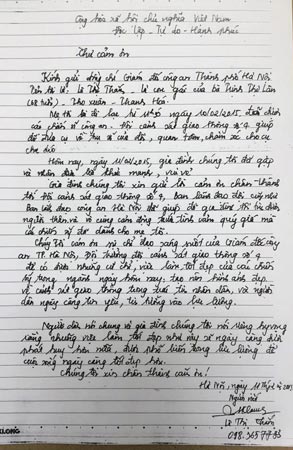 Cộng hòa xã hội chủ nghĩa Việt Nam
Độc lập - Tự do - Hạnh phúc
Thư cảm ơn
Kính gửi đồng chí Giám đốc công an Thành phố Hà Nội
Tên tôi là Lê Thị Thắn là con gái của bà Trịnh Thị Lân
Thọ xuân - Thanh Hóa
Mẹ tôi bị lạc từ ngày 10/02/2015, được
các chiến sĩ công an - Đội cảnh sát giao thông số 4 giúp
đỡ đưa về trụ sở của đội, quan tâm, chăm sóc cho cụ
chu đáo
Hôm nay, ngày 11/02/2015, gia đình chúng tôi đã gặp
và nhận lại cụ khỏe mạnh, vui vẻ
Gia đình chúng tôi xin gửi lời cảm ơn chân thành
tới Đội cảnh sát giao thông số 4, ban lãnh đạo đội cũng như
ban lãnh đạo công an Hà Nội đã giúp đỡ gia đình tôi tìm được
người thân và vô cùng cảm động trước tình cảm quý giá mà
các chiến sỹ đã dành cho mẹ tôi.
Chúng tôi cảm ơn sự chỉ đạo sáng suốt của Giám đốc công
an TP Hà Nội, Đội trưởng đội cảnh sát giao thông số 4
để có được những cử chỉ, việc làm tốt đẹp của các chiến
sỹ trong ngày hôm nay, tạo nên hình ảnh đẹp
về cảnh sát giao thông trong trái tim nhân dân, với người
dân ngày càng tin yêu, tin tưởng vào lực lượng.
Người dân nói chung và gia đình chúng tôi nói riêng hy vọng
rằng những việc làm tốt đẹp như này sẽ ngày càng được
phát huy hơn nữa, được phổ biến trong lực lượng để
cuộc sống ngày càng tốt đẹp hơn.
Chúng tôi xin chân thành cảm ơn!
Hà Nội, ngày 11 tháng 2
Người viết
Lê Thị Thắn
098.365 7755
KLONG